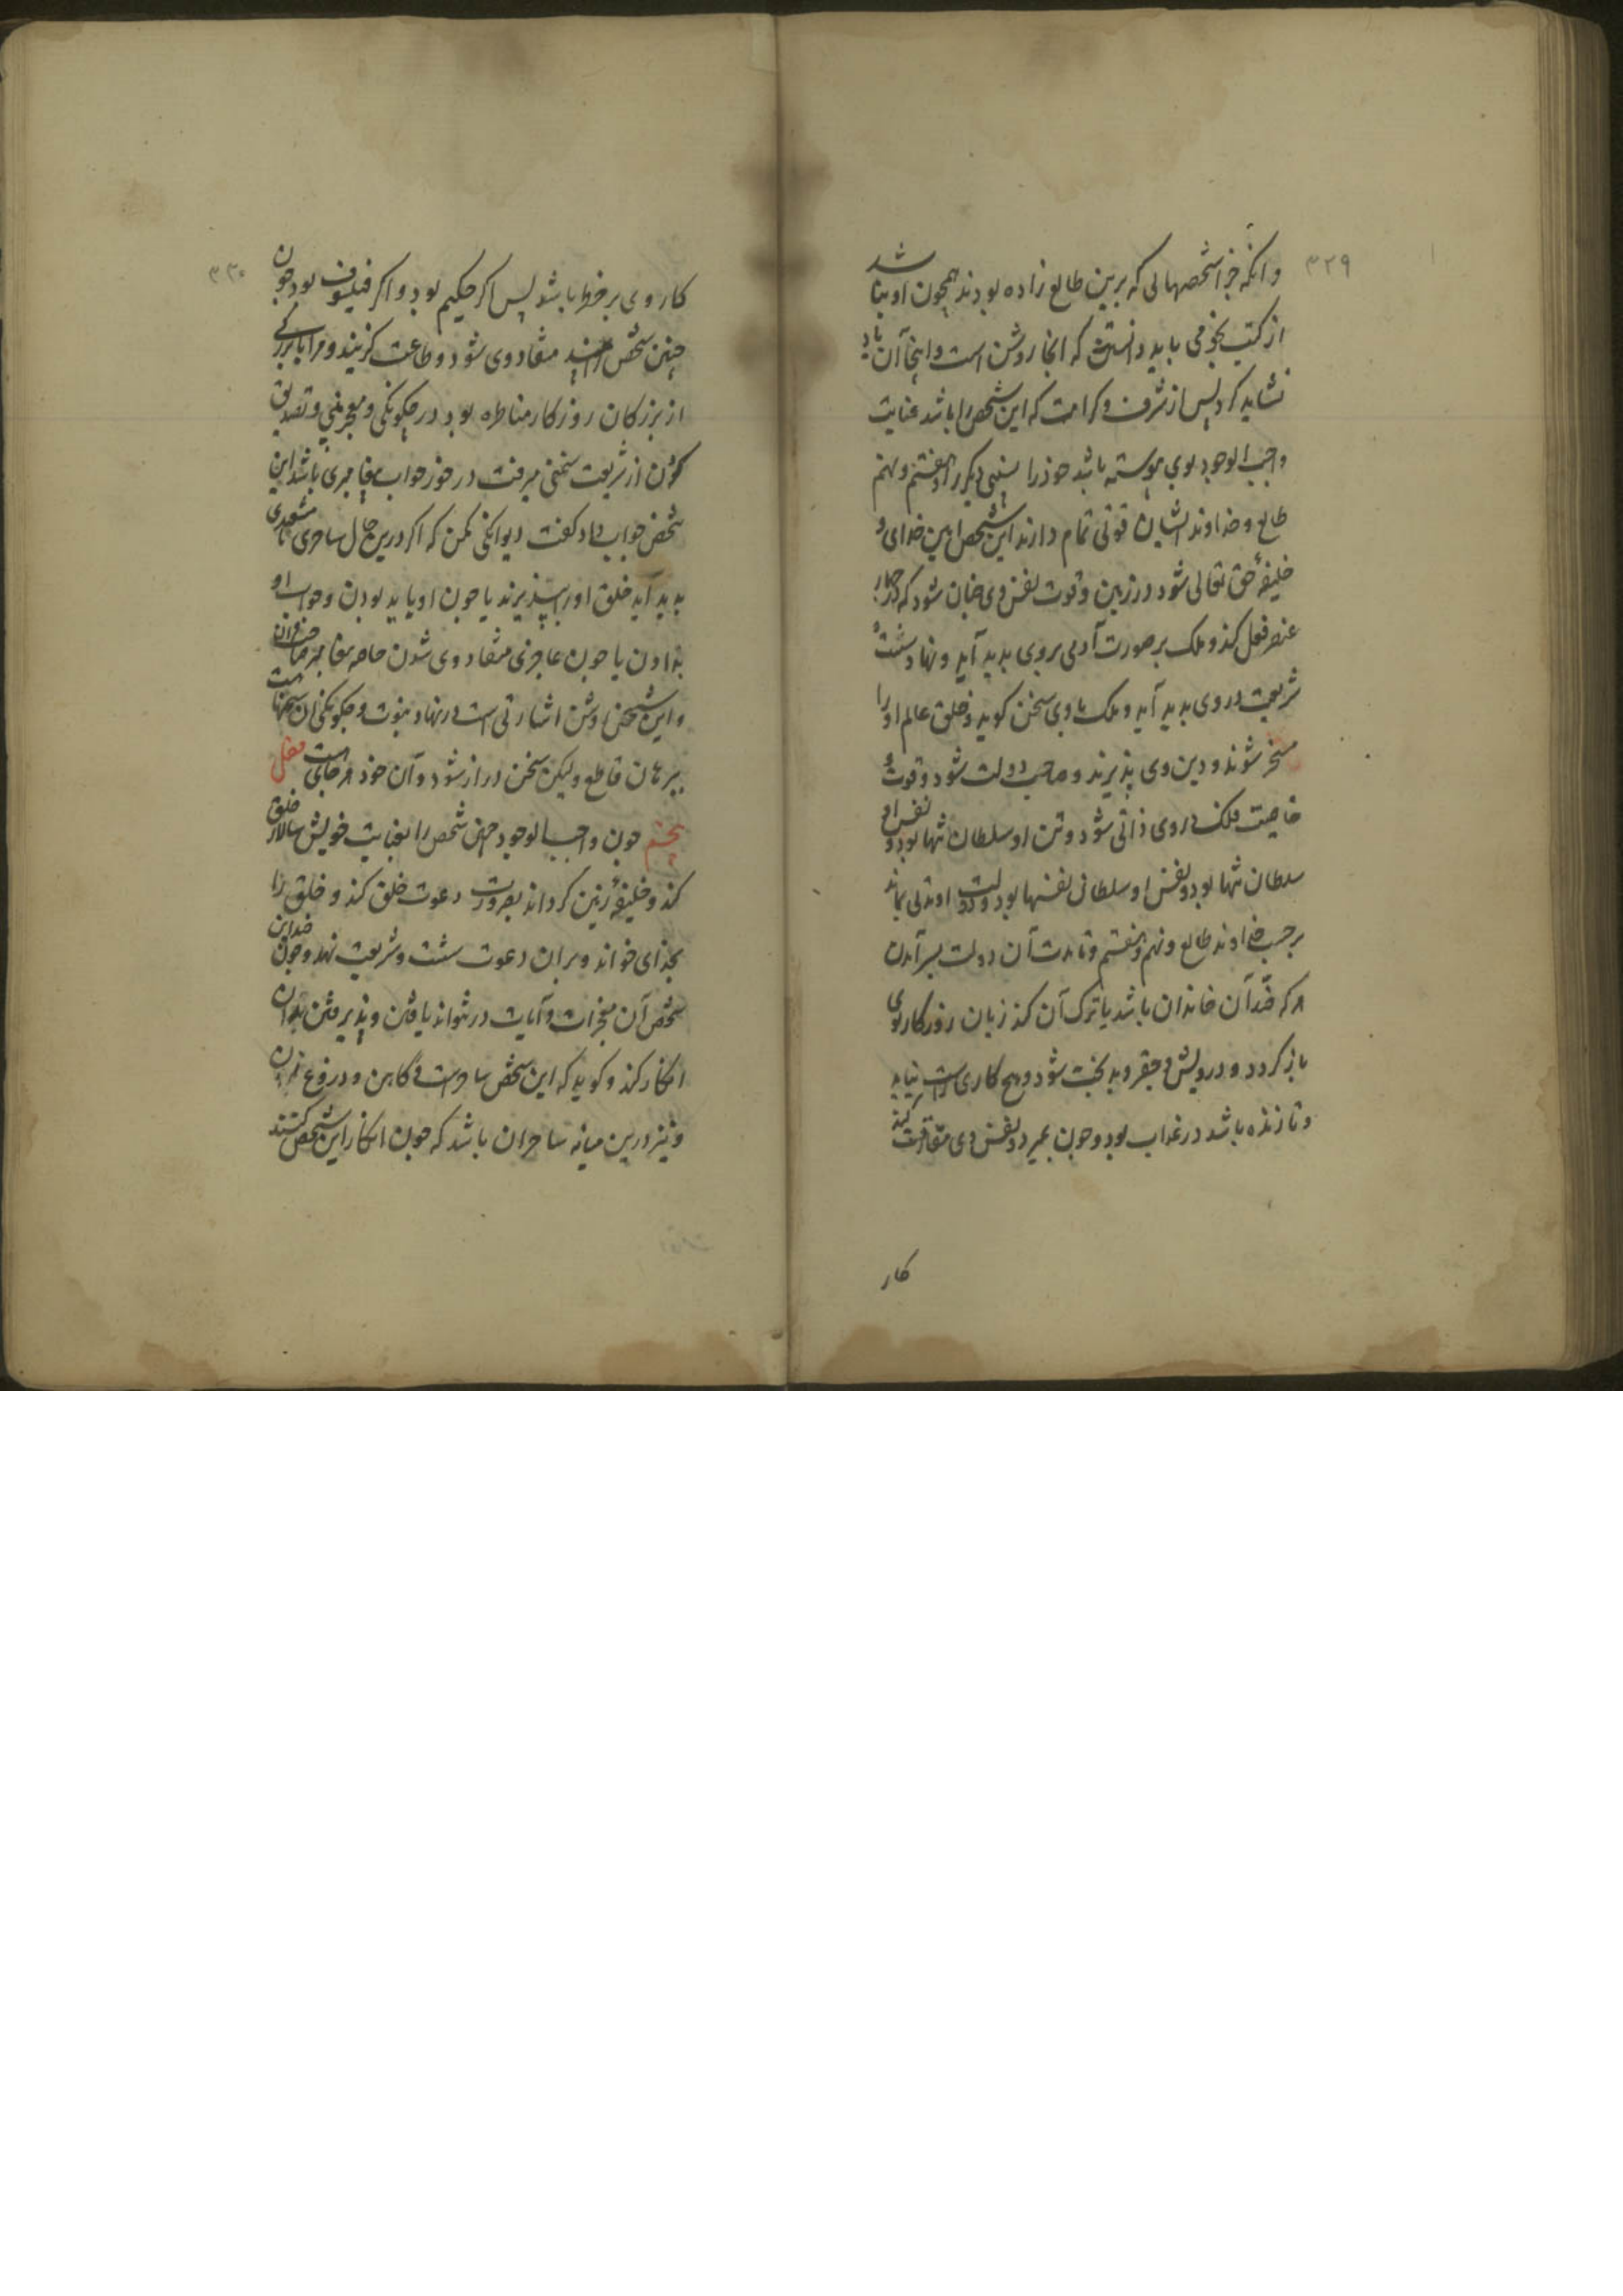 ۳۲۹
و انکه جز اشخصهایی که برین طالع زاده بودند همچون او نباشد
از کتب نجومی باید دانستن که انجا روشن است و اینجا آن یاد
نشاید کرد پس از شرف و کرامت که این شخص را باشد عنایت
واجب الوجود بوی پیوسته باشد خود را سببی دیگر را هفتم و نهم
طالع و خداوند ایشان قوتی تمام دارند این شخص امین خدای و
خلیفهٔ حق تعالی شود در زمین و قوت نفس وی چنان شود که در چهار
عنصر فعل کند و ملک بر صورت آدمی بروی پدید آید و نهاد سنت و
شریعت در وی پدید آید و ملک با وی سخن کوید و خلق عالم او را
مسخر شوند و دین وی پذیرند و صاحب دولت شود و قوت و
خاصیت فلک در وی ذاتی شود و تن او سلطان تنها بود و نفس او
سلطان تنها بود و نفس او سلطان نفسها بود و دولت او مدتی بماند
برحسب خداوند طالع و نهم و هفتم و تا مدت آن دولت بسر آمدن
هر که ضد آن خاندان باشد یا ترک آن کند زیان روزکار بوی
باز کردد و درویش و حقیر و بد بخت شود و هیچ کاری راست نیاید
و تا زنده باشد در عذاب بود و چون بمیرد و نفس وی مفارقت کند
کار
۳۳۰
کار وی برخطر باشد پس اکر حکیم بود و اکر فیلسوف بود چون
چنین شخص منقاد وی شود و طاعت کزیند و مرا با بزرکی
از بزرکان روزکار مناظره بود در چکونکی و معجز نبی و تصدیق
کردن از شریعت سخنی میرفت در خور جواب پیغامبری باشد این
شخص جواب داد کفت دیوانکی مکن که اکر درین حال ساحری یا مشعبدی
پدید آید خلق او را بپذیرند یا چون او باید بودن و جواب او
بدادن یا چون عاجزی منقاد وی شدن خاصه پیغامبر صاحب قران
و این سخن روشن اشارتی است در نهاد نبوت و چکونکی آن سخنهاست
ببرهان قاطع ولیکن سخن دراز شود و آن خود هر جایی است فصل
پنجم چون واجب الوجود چنین شخص را بعنایت خویش سالار خلق
کند و خلیفهٔ زمین کرداند بضرورت دعوت خلق کند و خلق را
بخدای خواند و بران دعوت سنت و شریعت نهد و چون ضد این
شخص آن معجزات و آیات در نتواند یافتن و پذیرفتن بدان
انکار کند و کوید که این شخص ساحر است و کاهن و دروغ زن
و نیز درین میانه ساحران باشد که چون انکار این شخص کنند